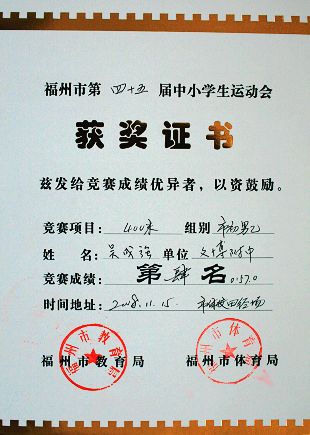 福州市第四十五届中小学生运动会
获奖证书
兹发给竞赛成绩优异者，以资鼓励。
竞赛项目：400米 组别 市初男乙
姓 名：吴成强 单位 文博附中
竞赛成绩：第肆名 0:57.0
时间地址：2008.11.15. 田径场
福州市教育局 福州市体育局
福州市教育局
福州市体育局